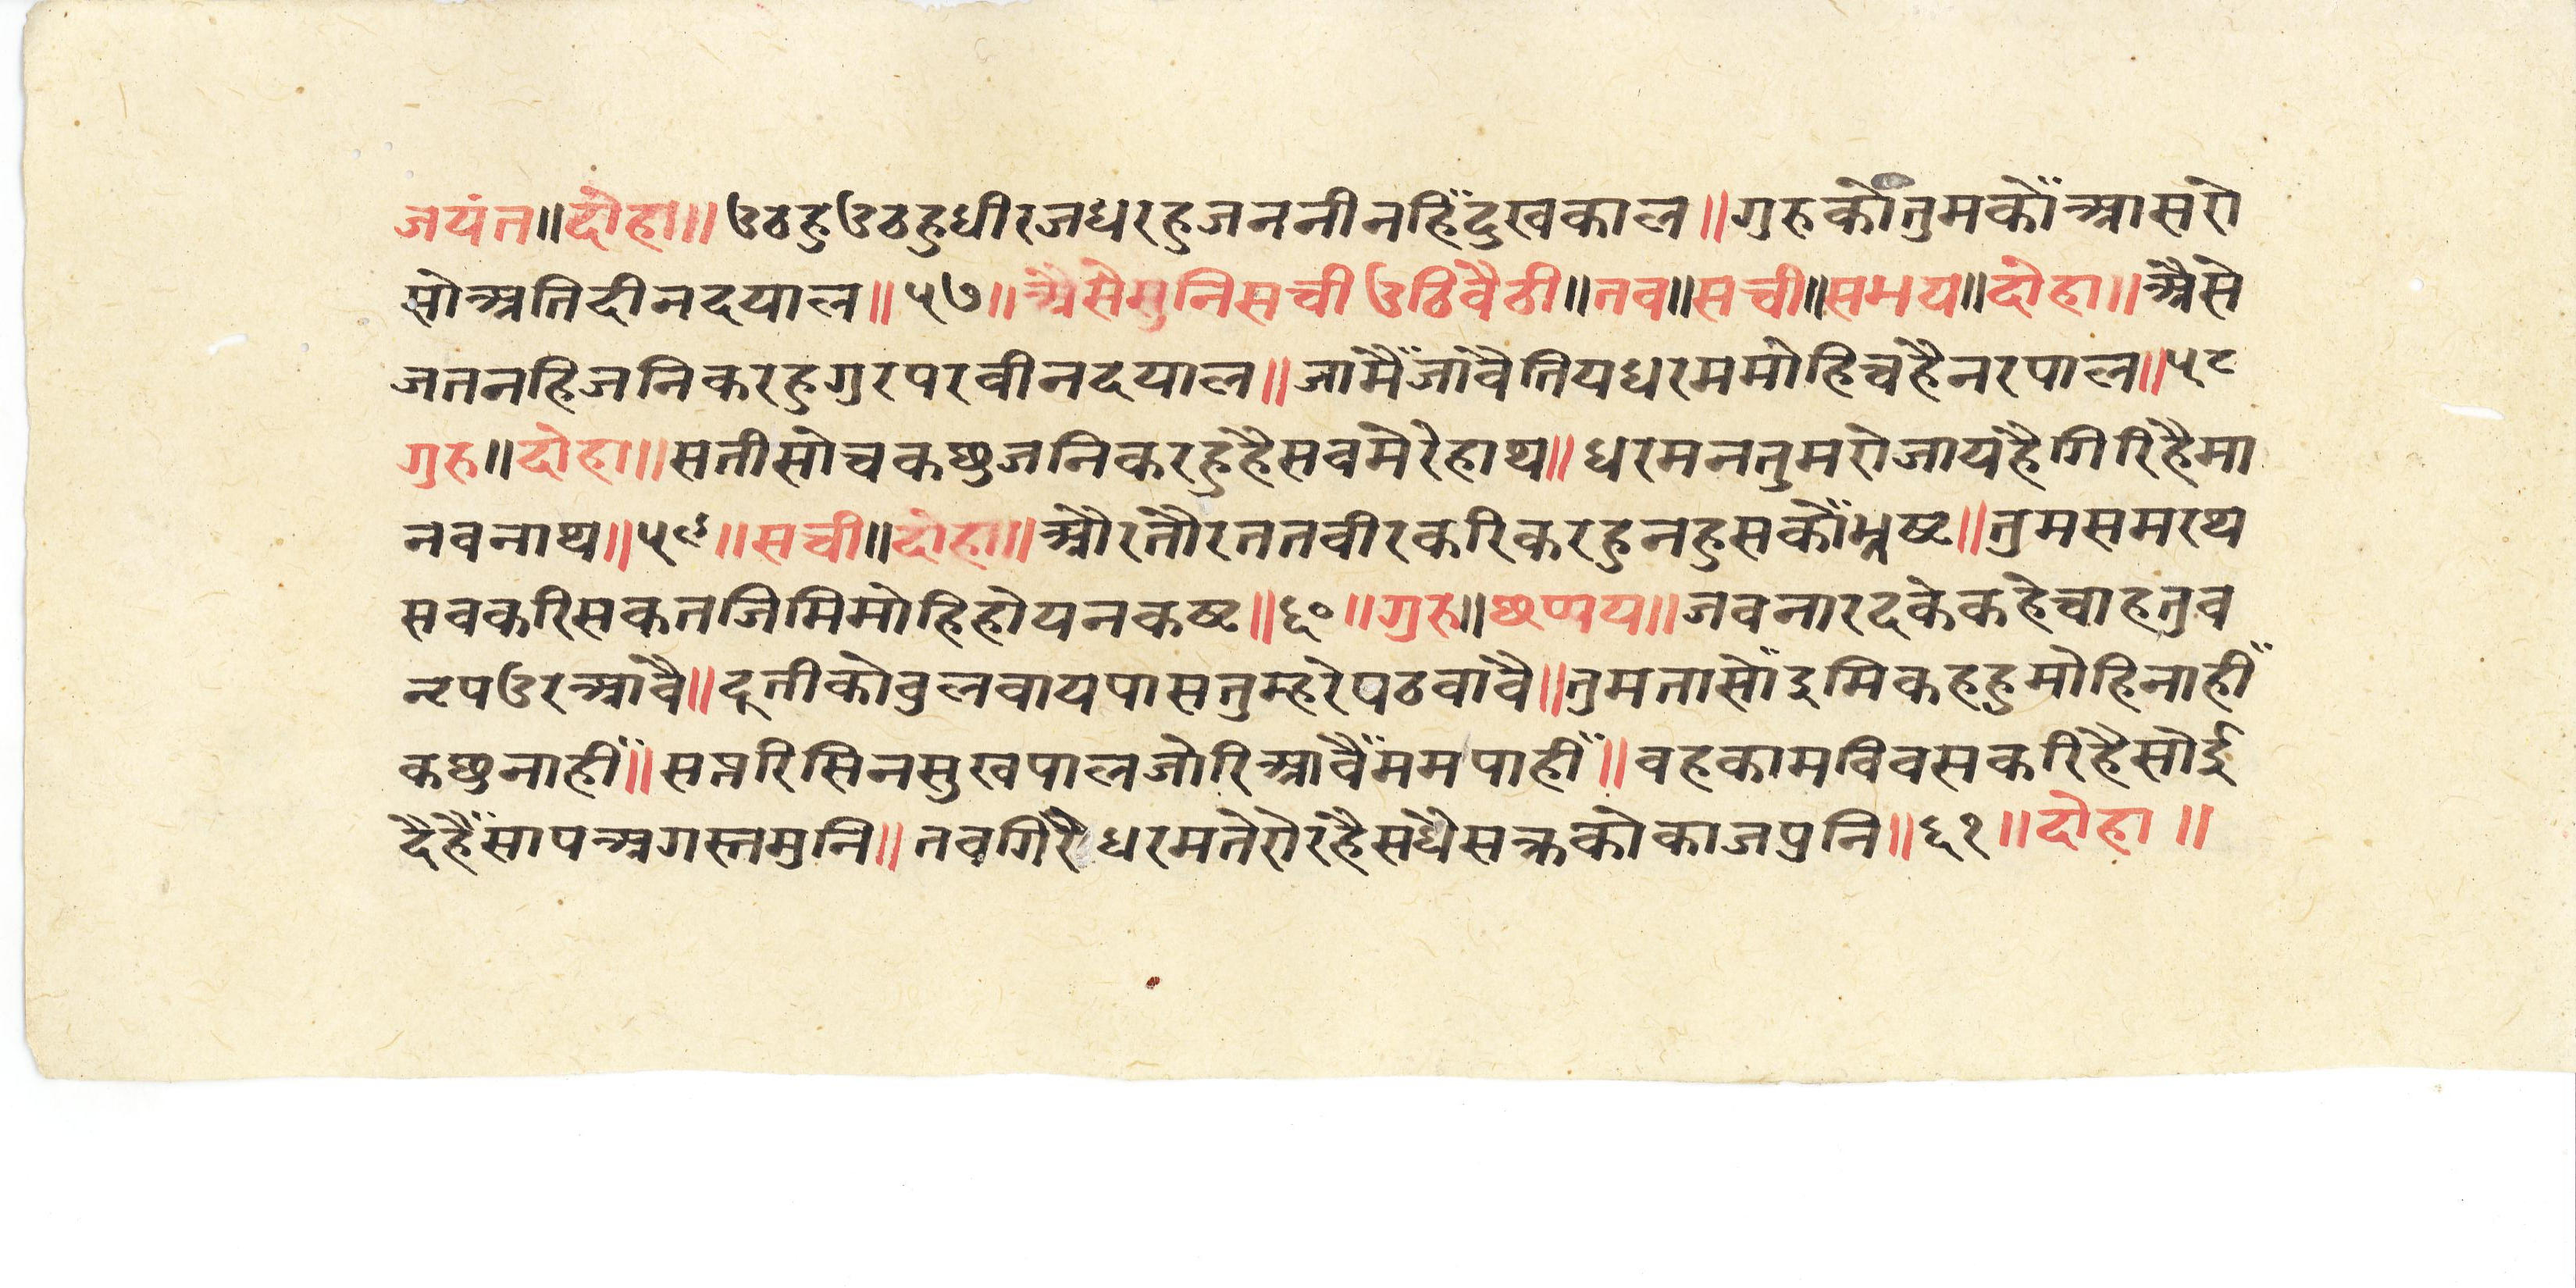 जयंत॥दोहा॥उठहुउठहुधीरजधरहुजननीनहिँदुखकाल॥गुरुकोतुमकोँआसरो
सोअतिदीनदयाल॥५७॥अैसेसुनिसचीउठिवैठी॥तव॥सची॥समय॥दोहा॥अैसे
जतनहिजनिकरहुगुरपरवीनदयाल॥जामैँजावैतियधरममोहिचहैनरपाल॥५८
गुरु॥दोहा॥सतीसोचकछुजनिकरहुहैसवमेरेहाथ॥धरमनतुमरोजायहैगिरिहैमा
नवनाथ॥५९॥सची॥दोहा॥औरतौरततवीरकरिकरहुनहुसकोँभ्रष्ट॥तुमसमरथ
सवकरिसकतजिमिमोहिहोयनकष्ट॥६०॥गुरु॥छप्पय॥जवनारदकेकहेचाहतुव
नृपउरआवै॥दूतीकोवुलवायपासतुम्हरेपठवावै॥तुमतासोँइमिकहहुमोहिनाहीँ
कछुनाहीँ॥सप्तरिसिनसुखपालजोरिआवैँममपाहीँ॥वहकामविवसकरिहैसोई
दैहैँसापअगस्तमुनि॥तवगिरैधरमतेरोरहैसधैसक्रकोकाजपुनि॥६१॥दोहा॥